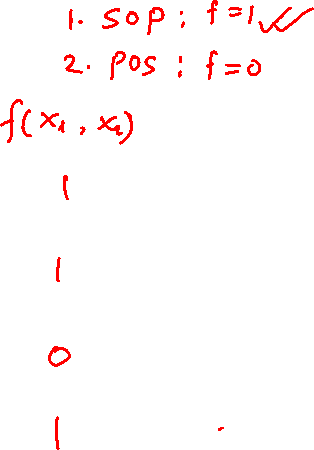 1. SOP : f=1 ✓✓
2. POS : f=0
f(x₁, x₂)
1
1
0
1